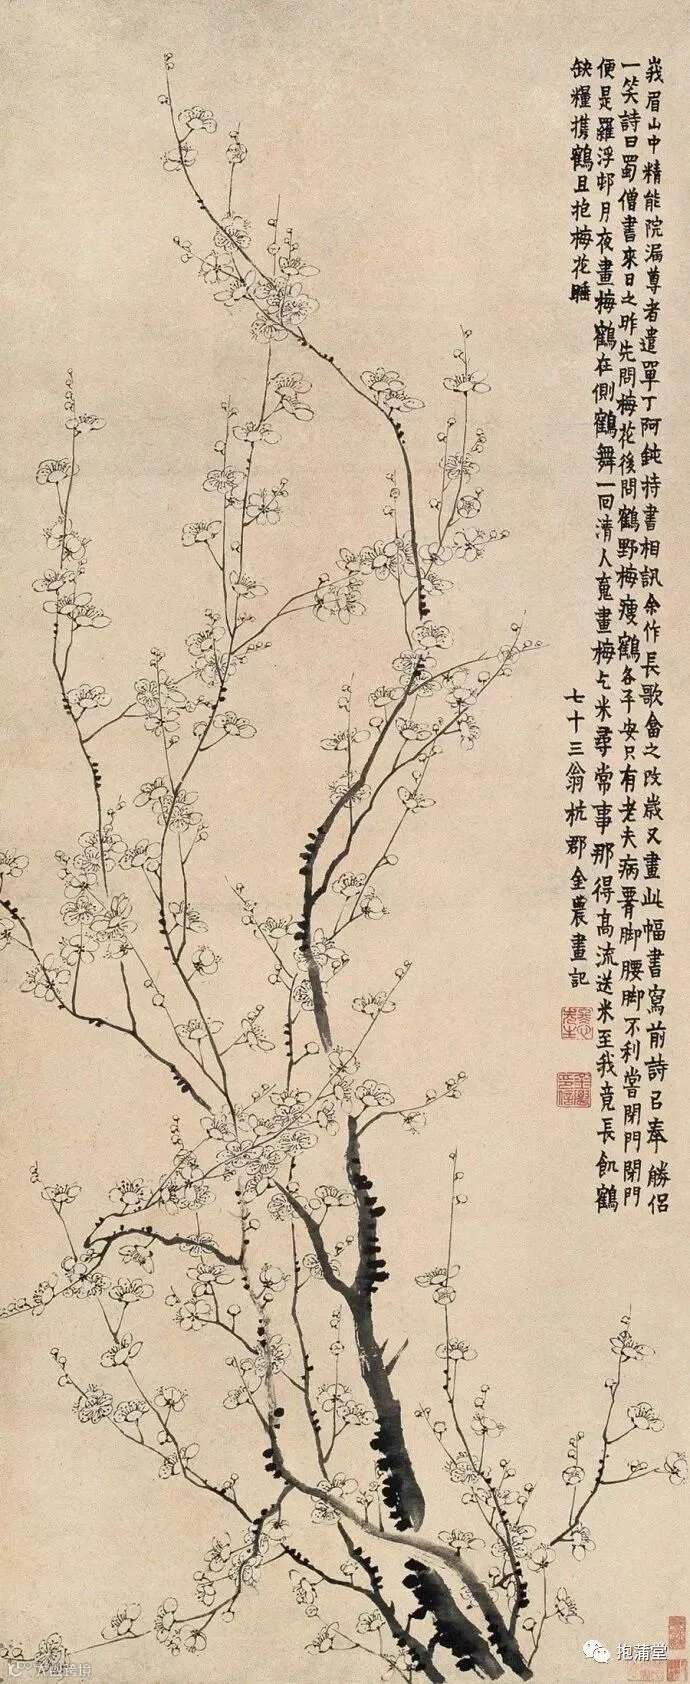 峩眉山中精能院漏尊者遣單丁阿鈍持書相訊余作長歌畣之改歲又畫此幅書寫前詩㠯奉勝侣
一笑詩曰蜀僧書來日之昨先問梅花後問鶴野梅瘦鶴各平安只有老夫病腰脚腰脚不利嘗閉門閉門
便是羅浮邨月夜畫梅鶴在側鶴舞一回清人蒐畫梅乞米尋常事那得高流送米至我竟長飢鶴
缺糧攜鶴且抱梅花睡
七十三翁杭郡金農畫記
抱蒲堂